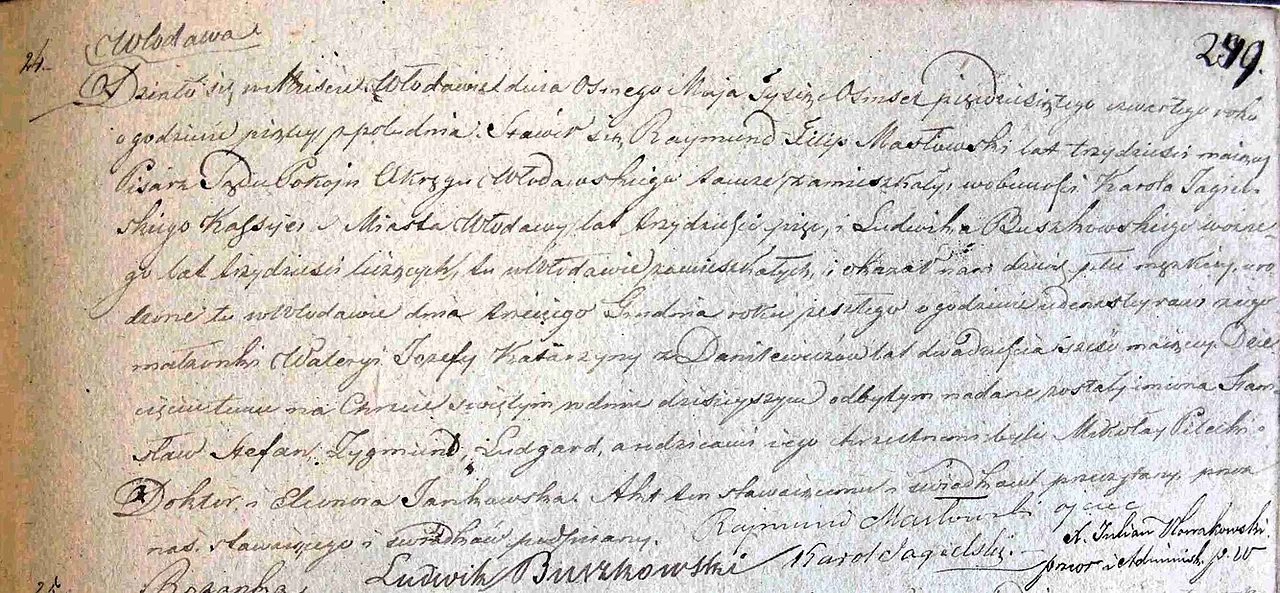 24. Włodawa.
249.
Działo się w Mieście Włodawie dnia Osmego Maja Tysiąc Osmset pięcdziesiątego czwartego roku
o godzinie piątey z południa. Stawił się Raymund Filip Masłowski lat trzydzieści maiący
Pisarz Sądu Pokoju Okręgu Włodawskiego tamże zamieszkały, w obecności Karola Jagiel-
skiego Kassyera Miasta Włodawy, lat trzydzieści pięć, i Ludwika Buszkowskiego woźne-
go lat trzydzieści liczących, tu w Włodawie zamieszkałych, i okazał nam dziecię płci męzkiey, uro-
dzone tu w Włodawie dnia trzeciego Grudnia roku zeszłego o godzinie iedenastey rano z iego
małżonki Waleryi Jozefy Katarzyny z Danilewiczow lat dwadzieścia sześć maiącey. Dzie-
cięciu temu na Chrzcie świętym w dniu dzisieyszym odbytym nadane zostały imiona Stani
sław Stefan, Zygmund, Ludgard, a rodzicami iego chrzestnemi byli Mikołay Pilecki
Doktor i Eleonora Jankowska. Akt ten stawaiącemu i świadkom przeczytany, przez
nas, stawaiącego i świadków podpisany. Rajmund Masłowski ojciec
Ludwik Buszkowski Karol Jagielski. X. Julian
przeor i Administr. p. W
25. Rozanka